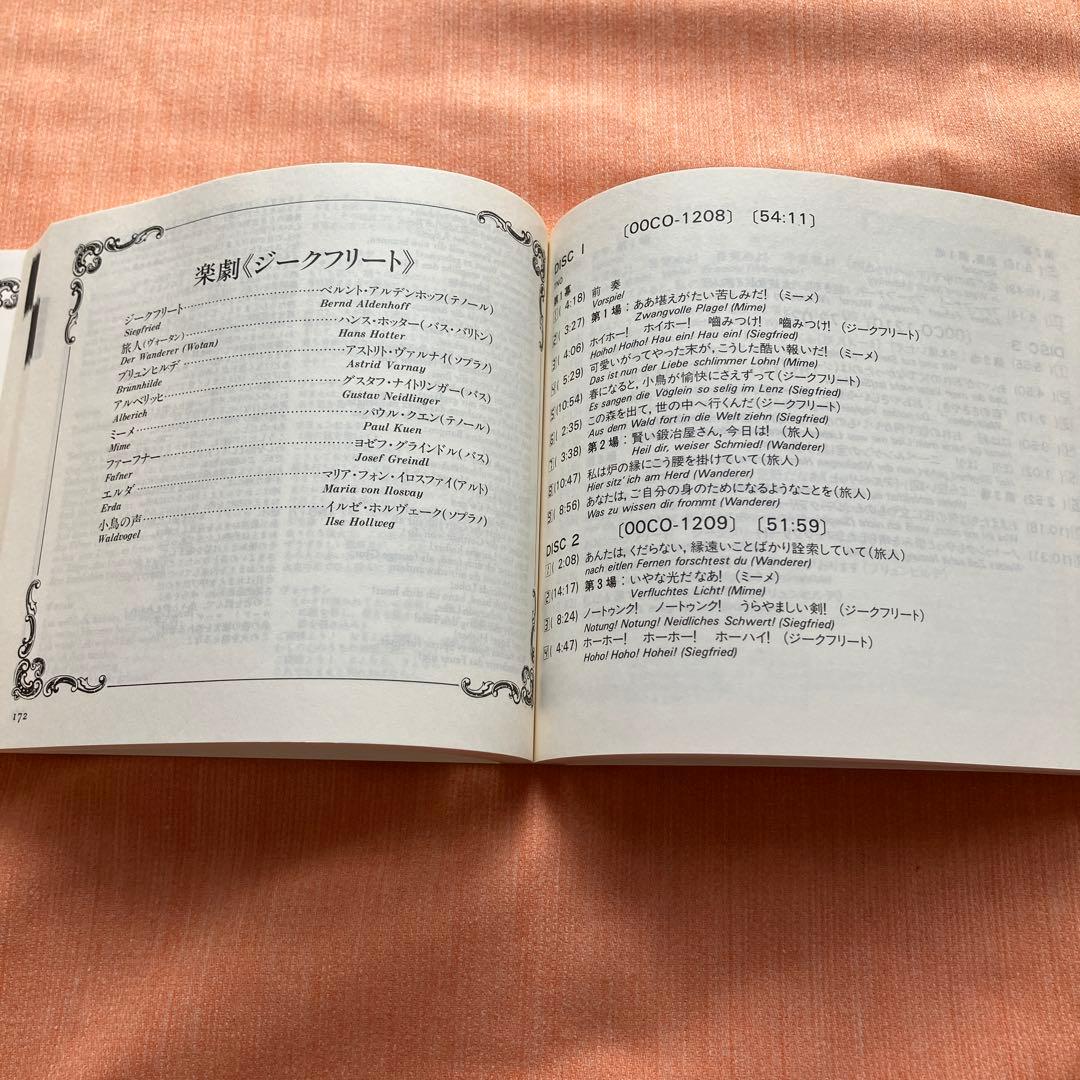 楽劇《ジークフリート》
ジークフリート………ベルント・アルデンホッフ(テノール)
Siegfried Bernd Aldenhoff
旅人(ヴォータン)………ハンス・ホッター(バス・バリトン)
Der Wanderer (Wotan) Hans Hotter
ブリュンヒルデ………アストリト・ヴァルナイ(ソプラノ)
Brünnhilde Astrid Varnay
アルベリッヒ………グスタフ・ナイトリンガー(バス)
Alberich Gustav Neidlinger
ミーメ………パウル・クエン(テノール)
Mime Paul Kuen
ファーフナー………ヨゼフ・グラインドル(バス)
Fafner Josef Greindl
エルダ………マリア・フォン・イロスファイ(アルト)
Erda Maria von Ilosvay
小鳥の声………イルゼ・ホルヴェーク(ソプラノ)
Waldvogel Ilse Hollweg
172
DISC 1 〔00CO-1208〕 〔54:11〕
第1幕
1( 4:18) 前 奏
Vorspiel
2( 3:27) 第1場：ああ堪えがたい苦しみだ! (ミーメ)
Zwangvolle Plage! (Mime)
3( 4:06) ホイホー! ホイホー! 嚙みつけ! 嚙みつけ! (ジークフリート)
Hoiho! Hoiho! Hau ein! Hau ein! (Siegfried)
4( 5:29) 可愛いがってやった末が,こうした酷い報いだ! (ミーメ)
Das ist nun der Liebe schlimmer Lohn! (Mime)
5(10:54) 春になると,小鳥が愉快にさえずって(ジークフリート)
Es sangen die Vöglein so selig im Lenz (Siegfried)
6( 2:35) この森を出て,世の中へ行くんだ(ジークフリート)
Aus dem Wald fort in die Welt ziehn (Siegfried)
7( 3:38) 第2場：賢い鍛冶屋さん,今日は! (旅人)
Heil dir, weiser Schmied! (Wanderer)
8(10:47) 私は炉の縁にこう腰を掛けていて(旅人)
Hier sitz' ich am Herd (Wanderer)
9( 8:56) あなたは,ご自分の身のためになるようなことを(旅人)
Was zu wissen dir frommt (Wanderer)
DISC 2 〔00CO-1209〕 〔51:59〕
1( 2:08) あんたは,くだらない,縁遠いことばかり詮索していて(旅人)
nach eitlen Fernen forschtest du (Wanderer)
2(14:17) 第3場：いやな光だなあ! (ミーメ)
Verfluchtes Licht! (Mime)
3( 8:24) ノートゥンク! ノートゥンク! うらやましい剣! (ジークフリート)
Notung! Notung! Neidliches Schwert! (Siegfried)
4( 4:47) ホーホー! ホーホー! ホーハイ! (ジークフリート)
Hoho! Hoho! Hohei! (Siegfried)